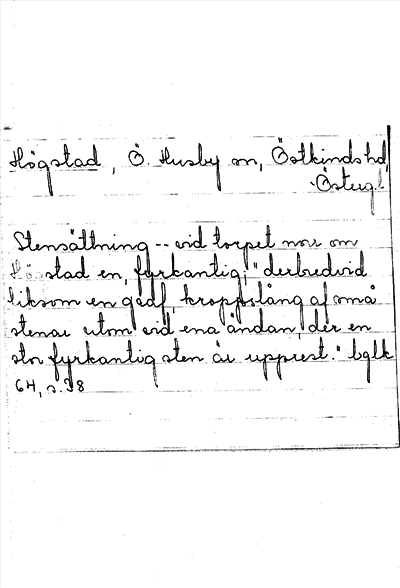 Högstad, Ö. Husby sn, Östkinds hd,
Östergl.
Stensättning -- vid torpet norr om
Hö stad en, fyrkantig; "derbredvid
liksom en graf, kroppslång af små
stenar utom vid ena ändan, der en
stor fyrkantig sten är upprest."
64, s. 38